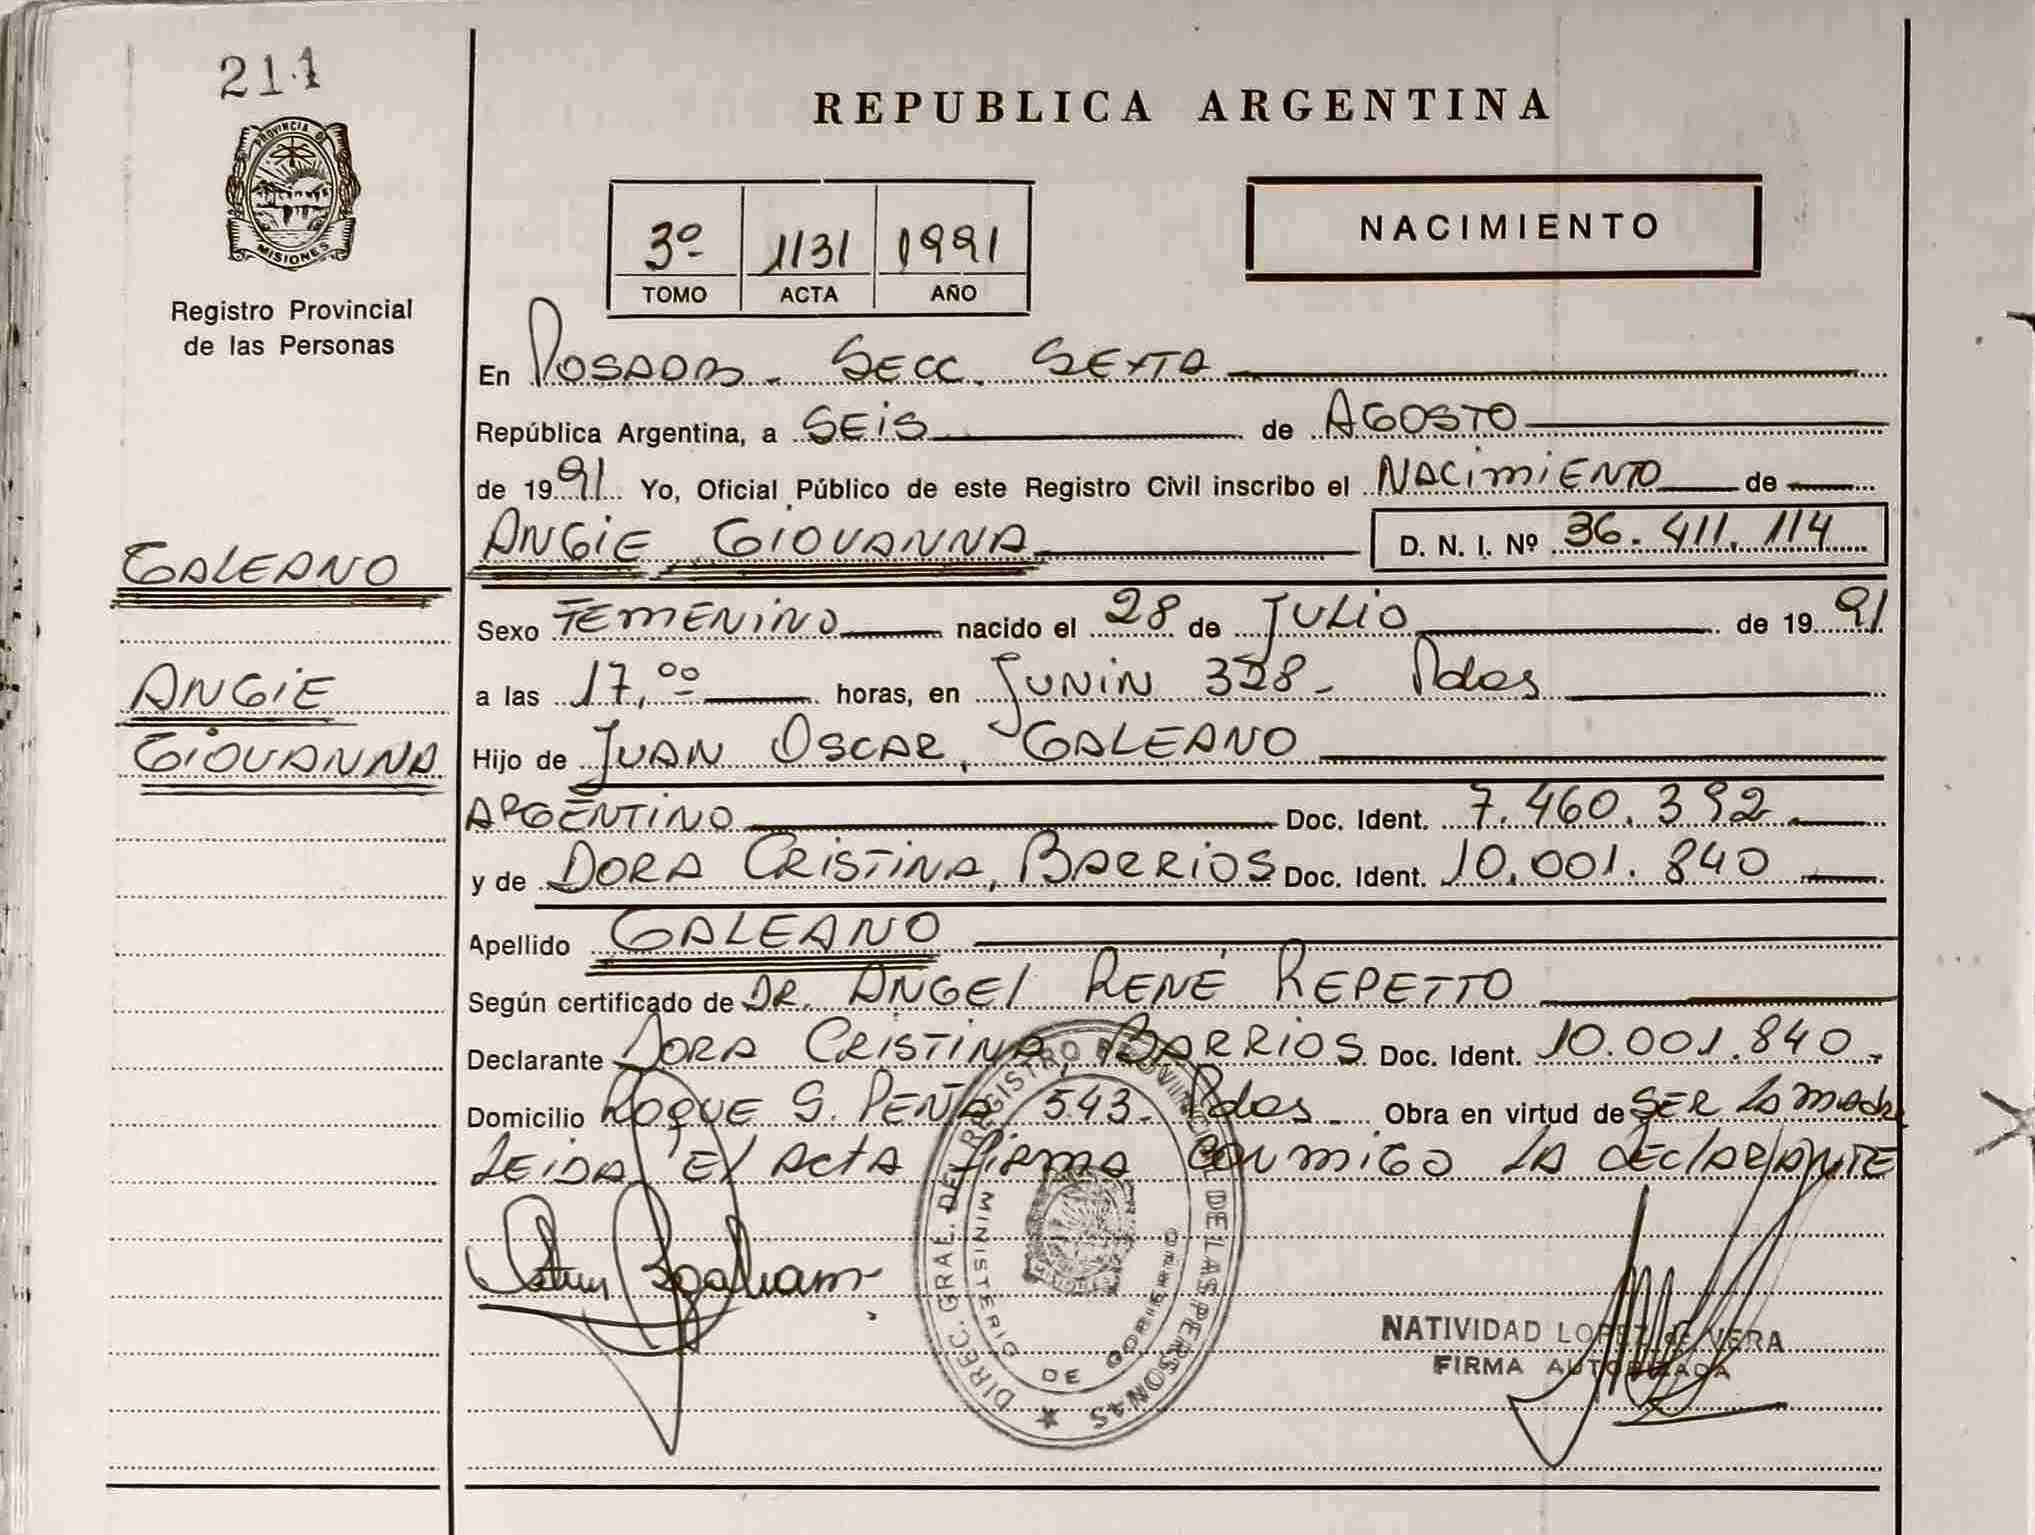 211
PROVINCIA DE
MISIONES
Registro Provincial
de las Personas
GALEANO
ANGIE
GIOVANNA
REPUBLICA ARGENTINA
3º 1131 1991
TOMO ACTA AÑO
NACIMIENTO
En POSADAS - SECC. SEXTA
República Argentina, a SEIS de AGOSTO
de 1991 Yo, Oficial Público de este Registro Civil inscribo el NACIMIENTO de
ANGIE GIOVANNA D. N. I. Nº 36.411.114
Sexo FEMENINO nacido el 28 de JULIO de 1991
a las 17,00 horas, en JUNIN 328 - Pdas
Hijo de JUAN OSCAR, GALEANO
ARGENTINO Doc. Ident. 7.460.392
y de DORA CRISTINA, BARRIOS Doc. Ident. 10.001.840
Apellido GALEANO
Según certificado de DR. ANGEL RENÉ REPETTO
Declarante DORA CRISTINA, BARRIOS Doc. Ident. 10.001.840
Domicilio ROQUE S. PEÑA 543 - Pdas Obra en virtud de SER LA MADRE
LEIDA EL ACTA FIRMA CONMIGO LA DECLARANTE
DIREC. GRAL. DEL REGISTRO PROVINCIAL DE LAS PERSONAS
MINISTERIO DE GOBIERNO
NATIVIDAD LOPEZ de VERA
FIRMA AUTORIZADA